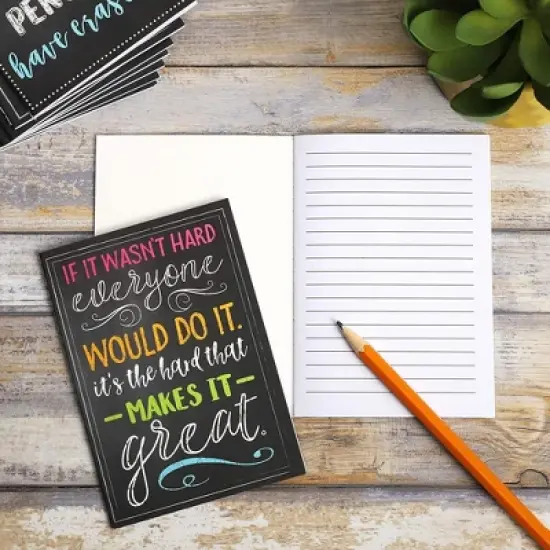 have eras
IF IT WASN'T HARD
everyone
WOULD DO IT.
it's the hard that
MAKES IT
great.